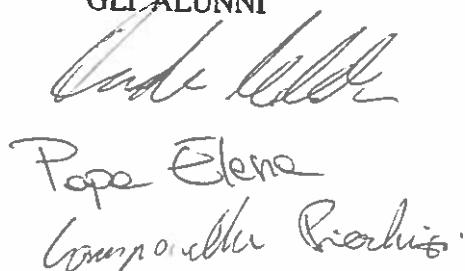 GLI ALUNNI
Papa Elena
Campanella Pierluigi